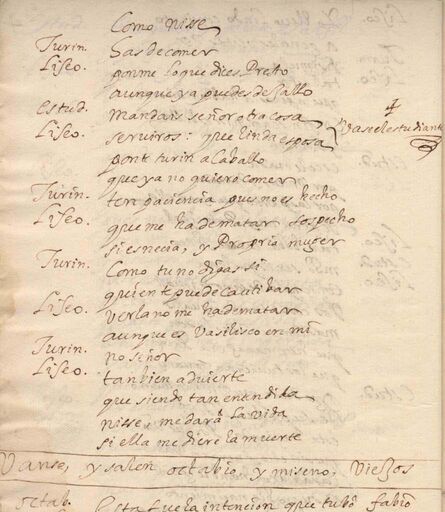 Como nisse,
Turin. has de comer
Liseo. ponme lo que dices Presto
aunque ya puedes dexallo
Estud. Mandais señor otra cosa
Liseo. serviros: que linda esposa
Vase el estudiante
pont turin a Caballo
que ya no quiero comer
Turin. ten paciencia pues no es hecho
Liseo. que me ha de matar sospecho
si es necia, y Propria muger
Turin. Como tu no digas si
quien te puede cautibar
Liseo. verla no me ha de matar
aunque es Vasilisco en mi
Turin. no señor
Liseo. tanbien advierte
que siendo tan entendida
nisse, me dara la vida
si ella me diere la muerte
Vanse, y salen octabio, y miseno, Viejos
octab. Esta fue la intencion que tubo fabio